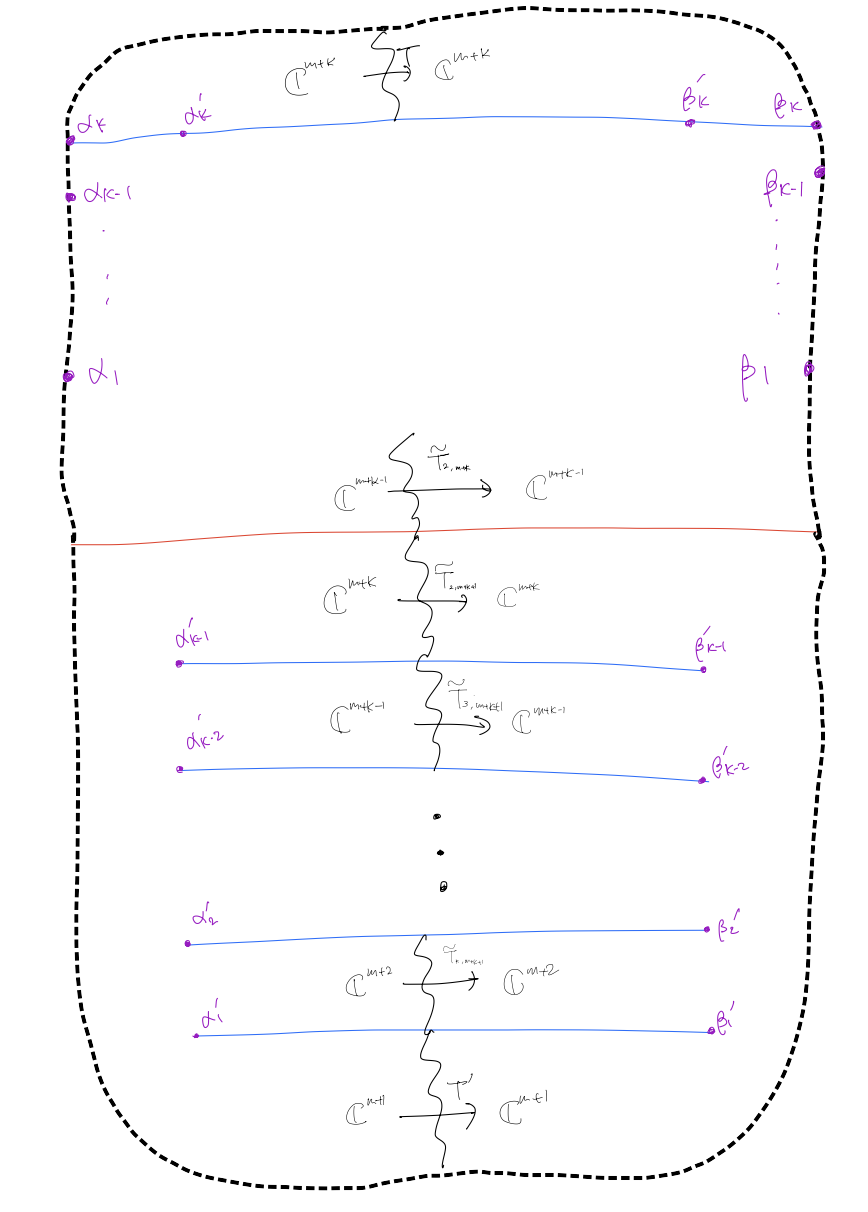 ℂ^{m+k} T ℂ^{m+k}
α_k α'_k β'_k β_k
α_{k-1} β_{k-1}
α_1 β_1
ℂ^{m+k-1} T̃_{2,m+k} ℂ^{m+k-1}
ℂ^{m+k} T̃_{2,m+k+1} ℂ^{m+k}
α'_{k-1} β'_{k-1}
ℂ^{m+k-1} T̃_{3,m+k+1} ℂ^{m+k-1}
α'_{k-2} β'_{k-2}
α'_2 β'_2
ℂ^{m+2} T̃_{k,m+k+1} ℂ^{m+2}
α'_1 β'_1
ℂ^{m+1} T' ℂ^{m+1}